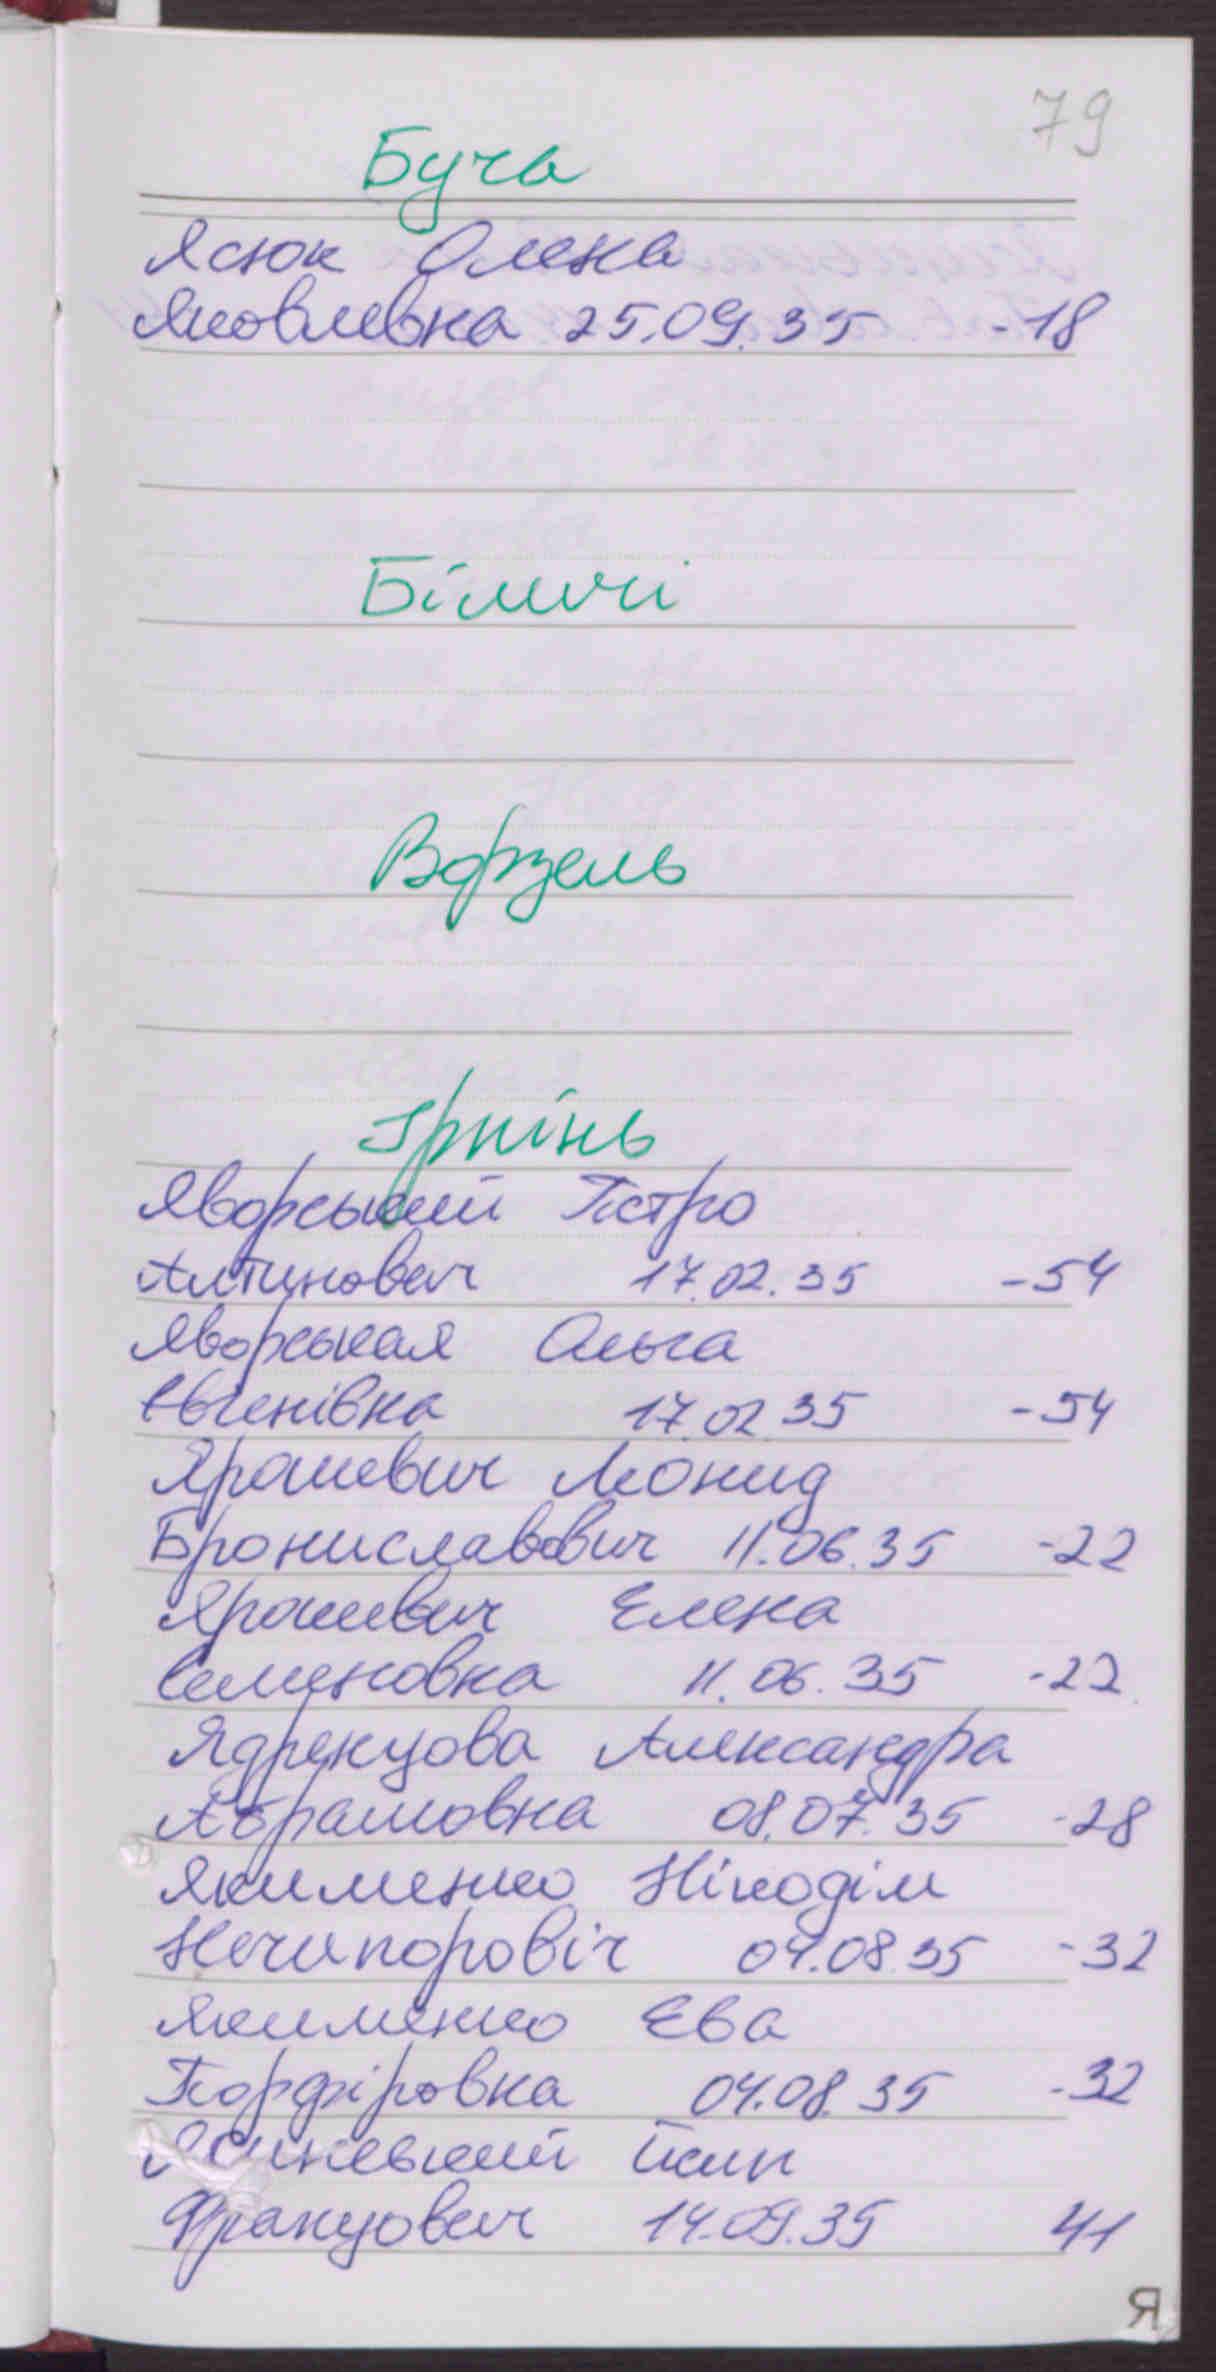 79
Буча
Ясюк Олена
Яковлевна 25.09.35 -18
Біличі
Ворзель
Ірпінь
Яворський Петро
17.02.35 -54
Яворськая Ольга
Евгенівна 17.02.35 -54
Ярошевич Леонид
Брониславович 11.06.35 -22
Ярошевич Елена
Семеновна 11.06.35 -22
Ядренцова Александра
Абрамовна 08.07.35 -28
Якименко Нікодім
Нечипоровіч 04.08.35 -32
Якименко Ева
Порфіровка 04.08.35 -32
Францович 14.09.35 41
Я